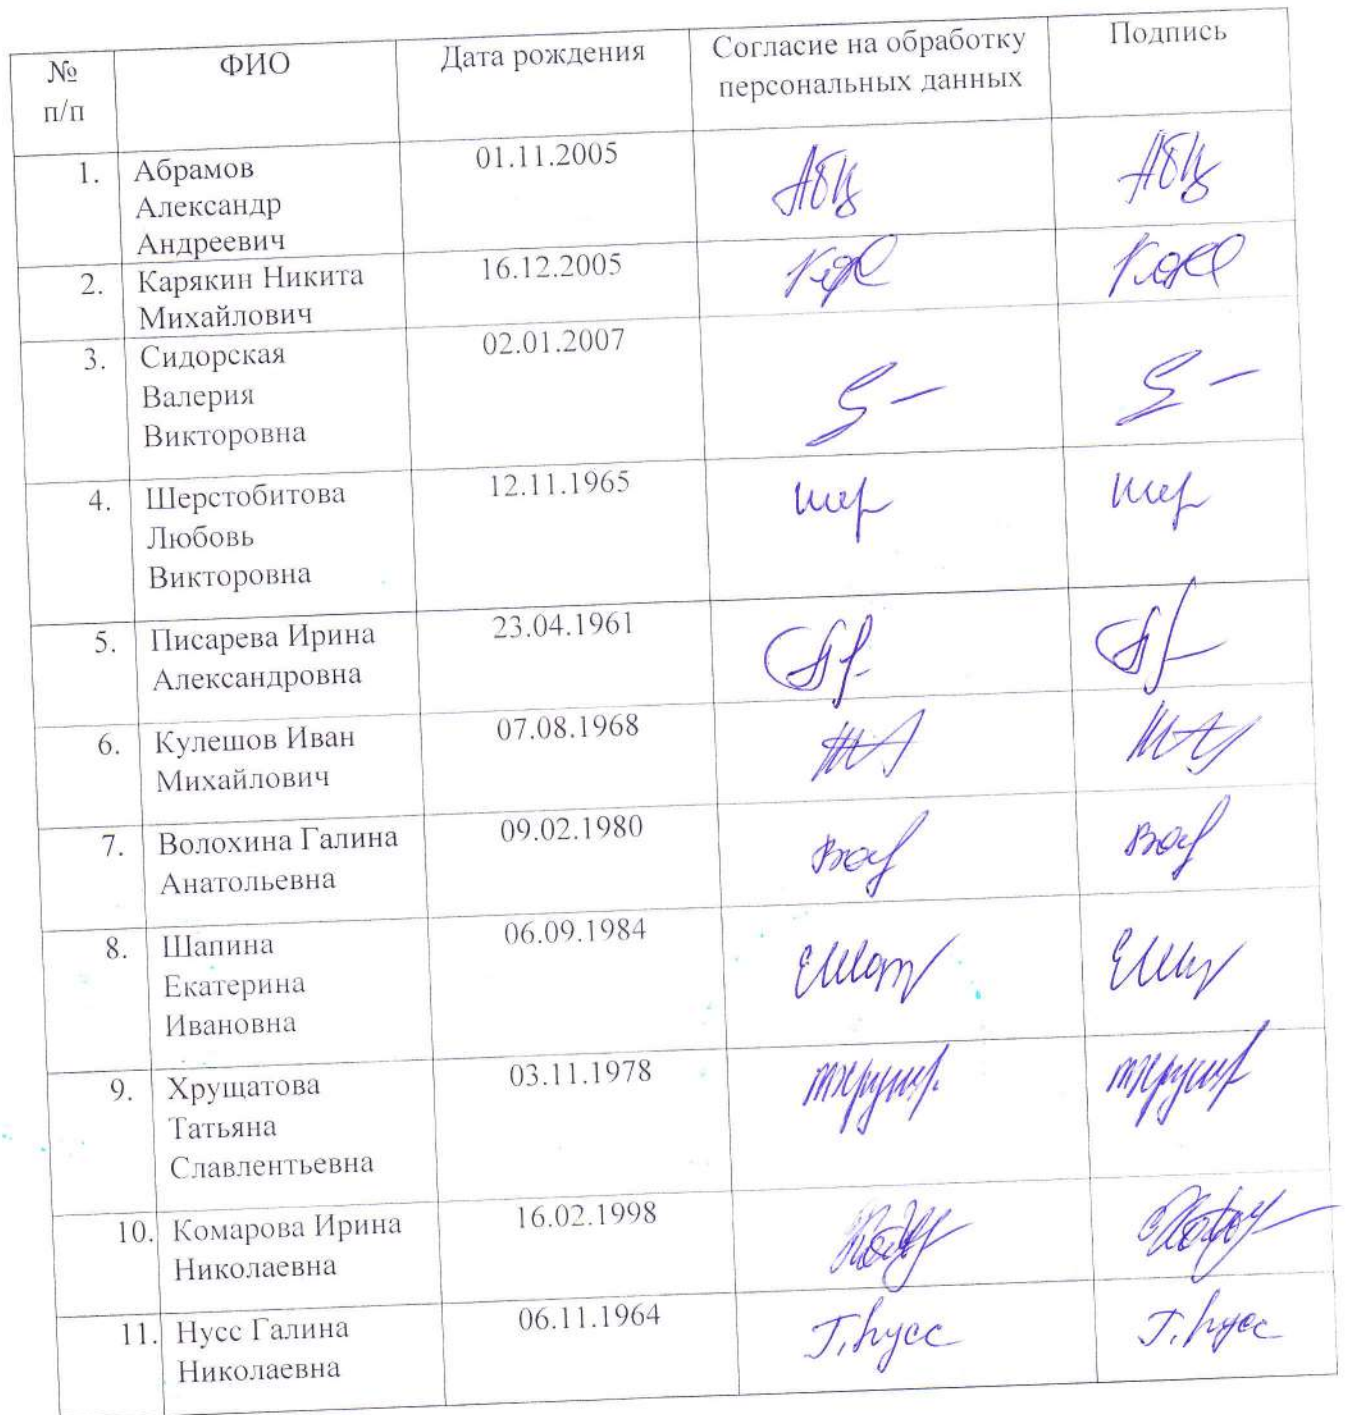 № п/п
ФИО
Дата рождения
Согласие на обработку
персональных данных
Подпись
1.
Абрамов
Александр
Андреевич
01.11.2005
2.
Карякин Никита
Михайлович
16.12.2005
3.
Сидорская
Валерия
Викторовна
02.01.2007
4.
Шерстобитова
Любовь
Викторовна
12.11.1965
5.
Писарева Ирина
Александровна
23.04.1961
6.
Кулешов Иван
Михайлович
07.08.1968
7.
Волохина Галина
Анатольевна
09.02.1980
8.
Шапина
Екатерина
Ивановна
06.09.1984
9.
Хрущатова
Татьяна
Славлентьевна
03.11.1978
10.
Комарова Ирина
Николаевна
16.02.1998
11.
Нусс Галина
Николаевна
06.11.1964
Г. Нусс
Г. Нусс